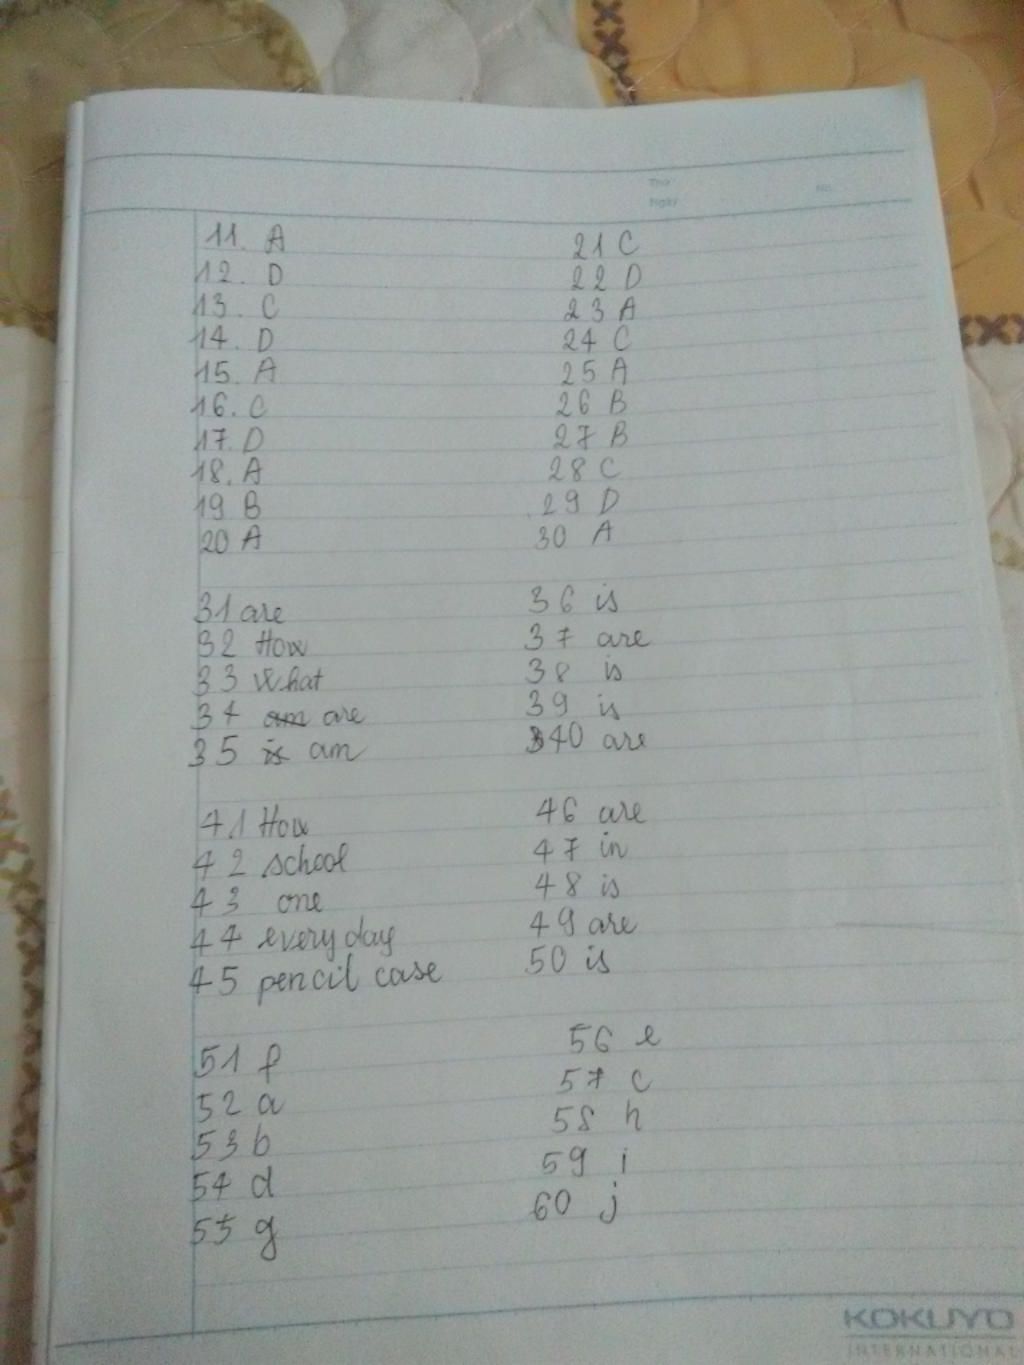 Thứ
Ngày
No.
11. A
12. D
13. C
14. D
15. A
16. C
17. D
18. A
19 B
20 A
21 C
22 D
23 A
24 C
25 A
26 B
27 B
28 C
29 D
30 A
31 are
32 How
33 What
34 am are
35 is am
36 is
37 are
38 is
39 is
40 are
41 How
42 school
43 one
44 every day
45 pencil case
46 are
47 in
48 is
49 are
50 is
51 f
52 a
53 b
54 d
55 g
56 e
57 c
58 h
59 i
60 j
KOKUYO
INTERNATIONAL